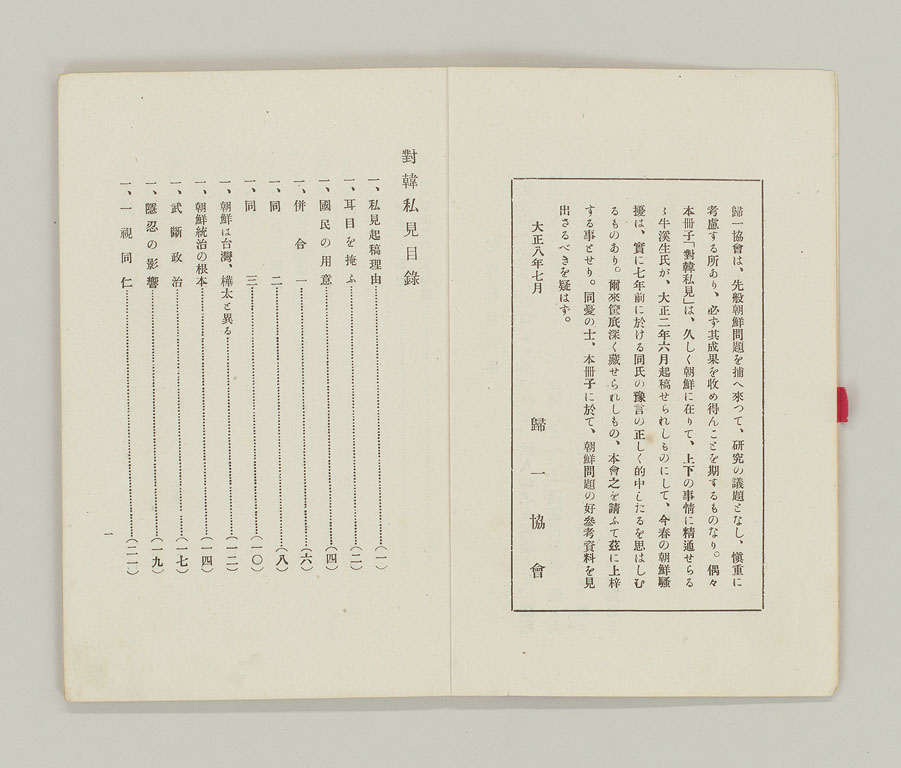 歸一協會は、先般朝鮮問題を捕へ來つて、研究の議題となし、愼重に
考慮する所あり、必ず其成果を收め得んことを期するものなり。偶々
本冊子「對韓私見」は、久しく朝鮮に在りて、上下の事情に精通せらる
ゝ牛溪生氏が、大正二年六月起稿せられしものにして、今春の朝鮮騷
擾は、實に七年前に於ける同氏の豫言の正しく的中したるを思はしむ
るものあり。爾來筐底深く藏せられしもの、本會之を請ふて茲に上梓
する事とせり。同憂の士、本冊子に於て、朝鮮問題の好參考資料を見
出さるべきを疑はす。
大正八年七月
歸一協會
對韓私見目錄
一、私見起稿理由……(一)
一、耳目を掩ふ……(二)
一、國民の用意……(四)
一、併合一……(六)
一、同二……(八)
一、同三……(一〇)
一、朝鮮は台灣、樺太と異る……(一二)
一、朝鮮統治の根本……(一四)
一、武斷政治……(一七)
一、隱忍の影響……(一九)
一、一視同仁……(二一)
一